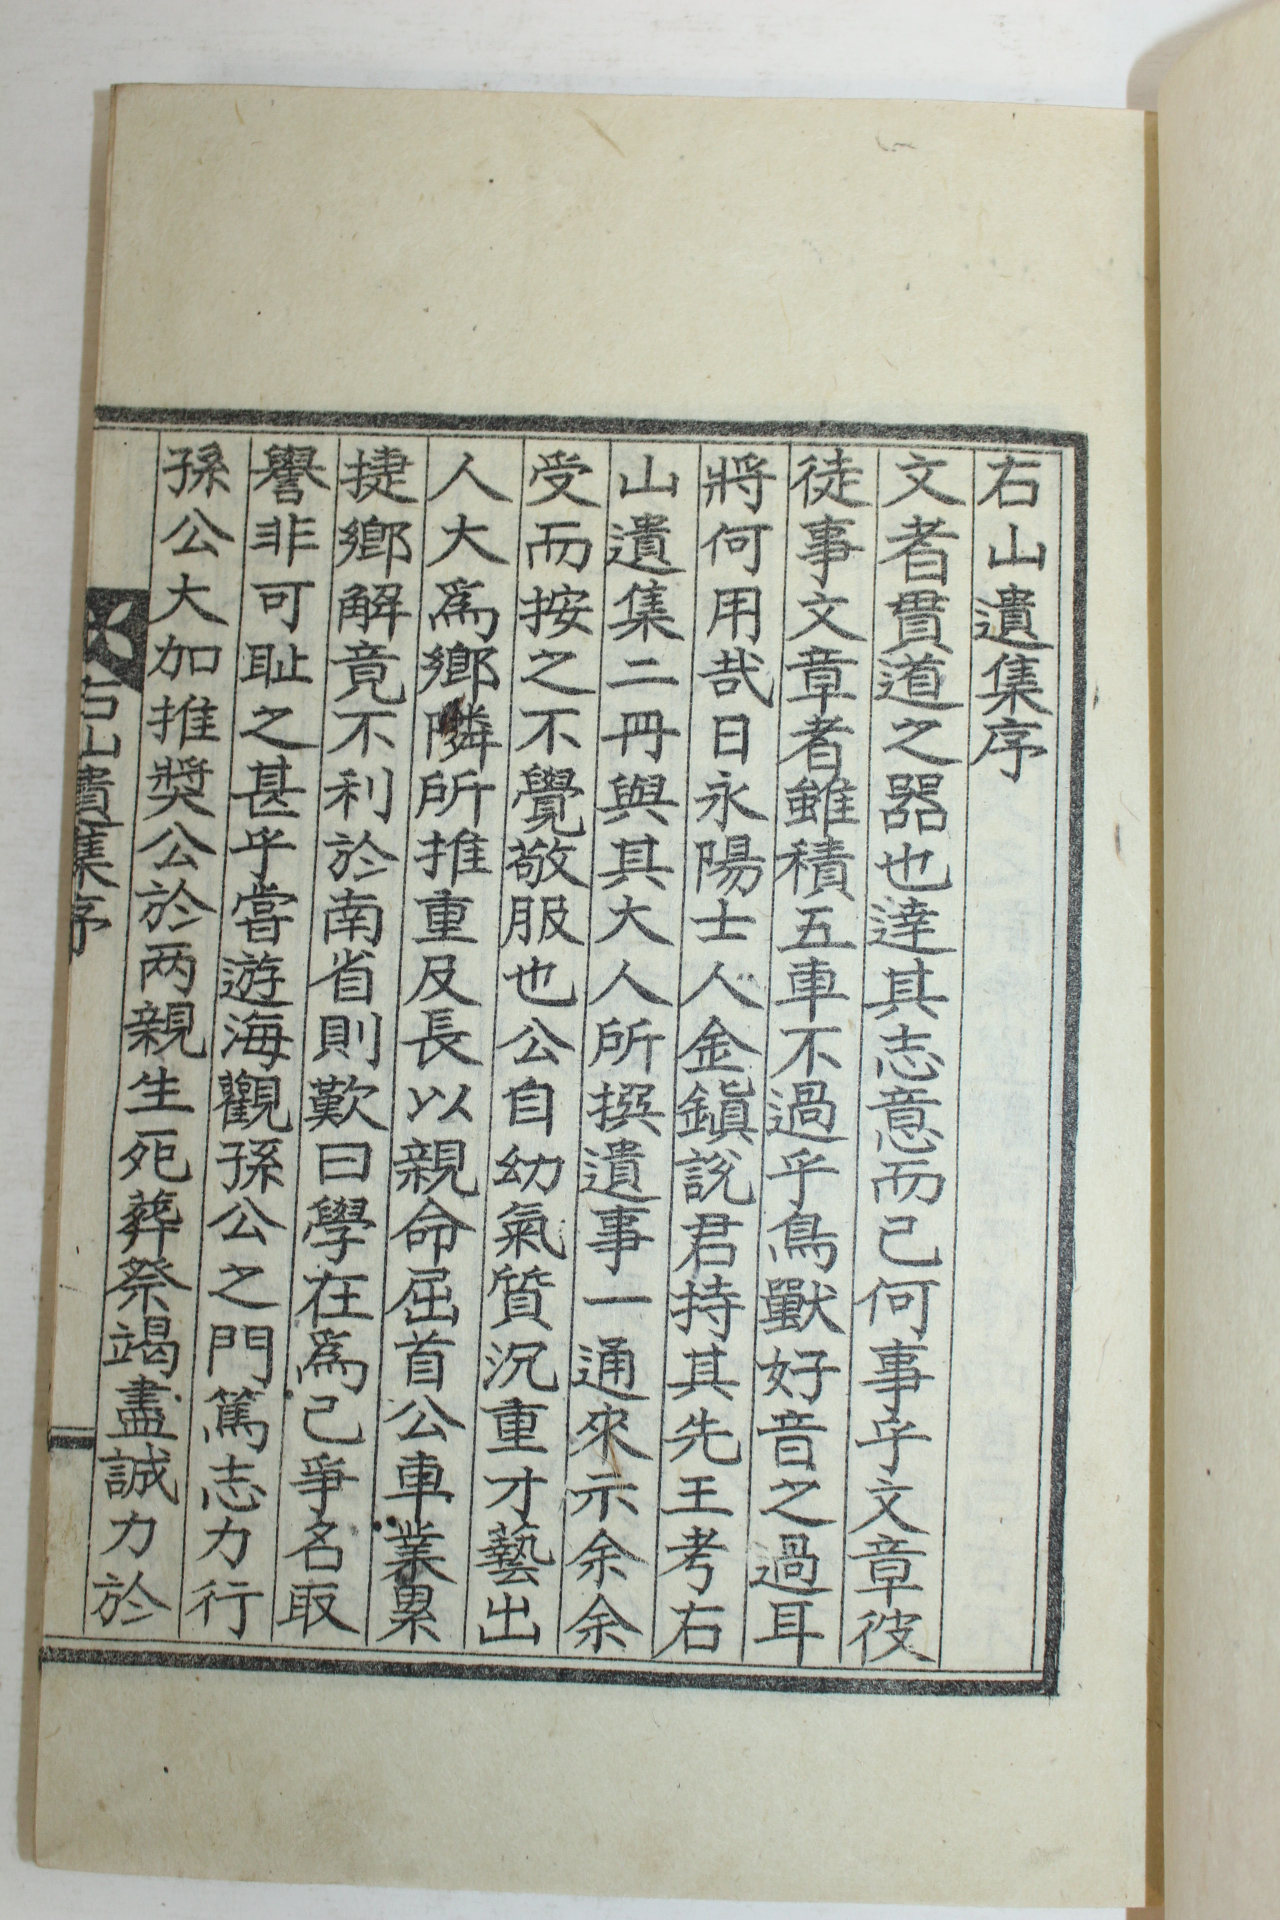 右山遺集序
文者貫道之器也達其志意而已何事乎文章彼
徒事文章者雖積五車不過乎鳥獸好音之過耳
將何用哉日永陽士人金鎭說君持其先王考右
山遺集二冊與其大人所撰遺事一通來示余余
受而按之不覺敬服也公自幼氣質沉重才藝出
人大爲鄕隣所推重及長以親命屈首公車業累
捷鄕解竟不利於南省則歎曰學在爲己爭名取
譽非可耻之甚乎嘗遊海觀孫公之門篤志力行
孫公大加推奬公於两親生死葬祭竭盡誠力於
右山遺集序